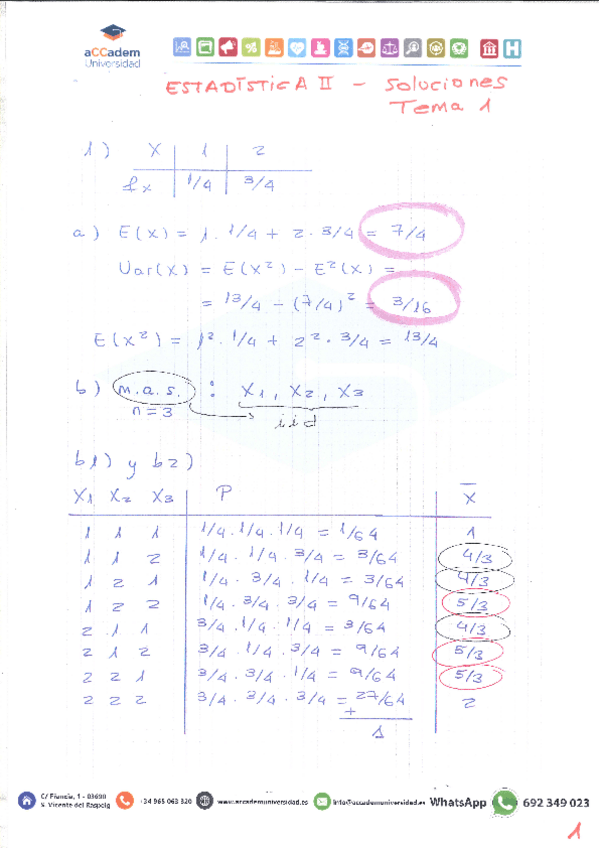 aCCadem
Universidad
ESTADÍSTICA II - Soluciones
Tema 1
1) X 1 2
fx 1/4 3/4
a) E(X) = 1 · 1/4 + 2 · 3/4 = 7/4
Var(X) = E(X²) - E²(X) =
= 13/4 - (7/4)² = 3/16
E(X²) = 1² · 1/4 + 2² · 3/4 = 13/4
b) m.a.s. : X1, X2, X3
n=3 iid
b1) y b2)
X1 X2 X3 P X̅
1 1 1 1/4 · 1/4 · 1/4 = 1/64 1
1 1 2 1/4 · 1/4 · 3/4 = 3/64 4/3
1 2 1 1/4 · 3/4 · 1/4 = 3/64 4/3
1 2 2 1/4 · 3/4 · 3/4 = 9/64 5/3
2 1 1 3/4 · 1/4 · 1/4 = 3/64 4/3
2 1 2 3/4 · 1/4 · 3/4 = 9/64 5/3
2 2 1 3/4 · 3/4 · 1/4 = 9/64 5/3
2 2 2 3/4 · 3/4 · 3/4 = 27/64 2
+
1
C/ 1 - 03690
S. Vicente del Raspeig
+34 965 063 820
www.accademuniversidad.es
info@accademuniversidad.es
WhatsApp
692 349 023
1